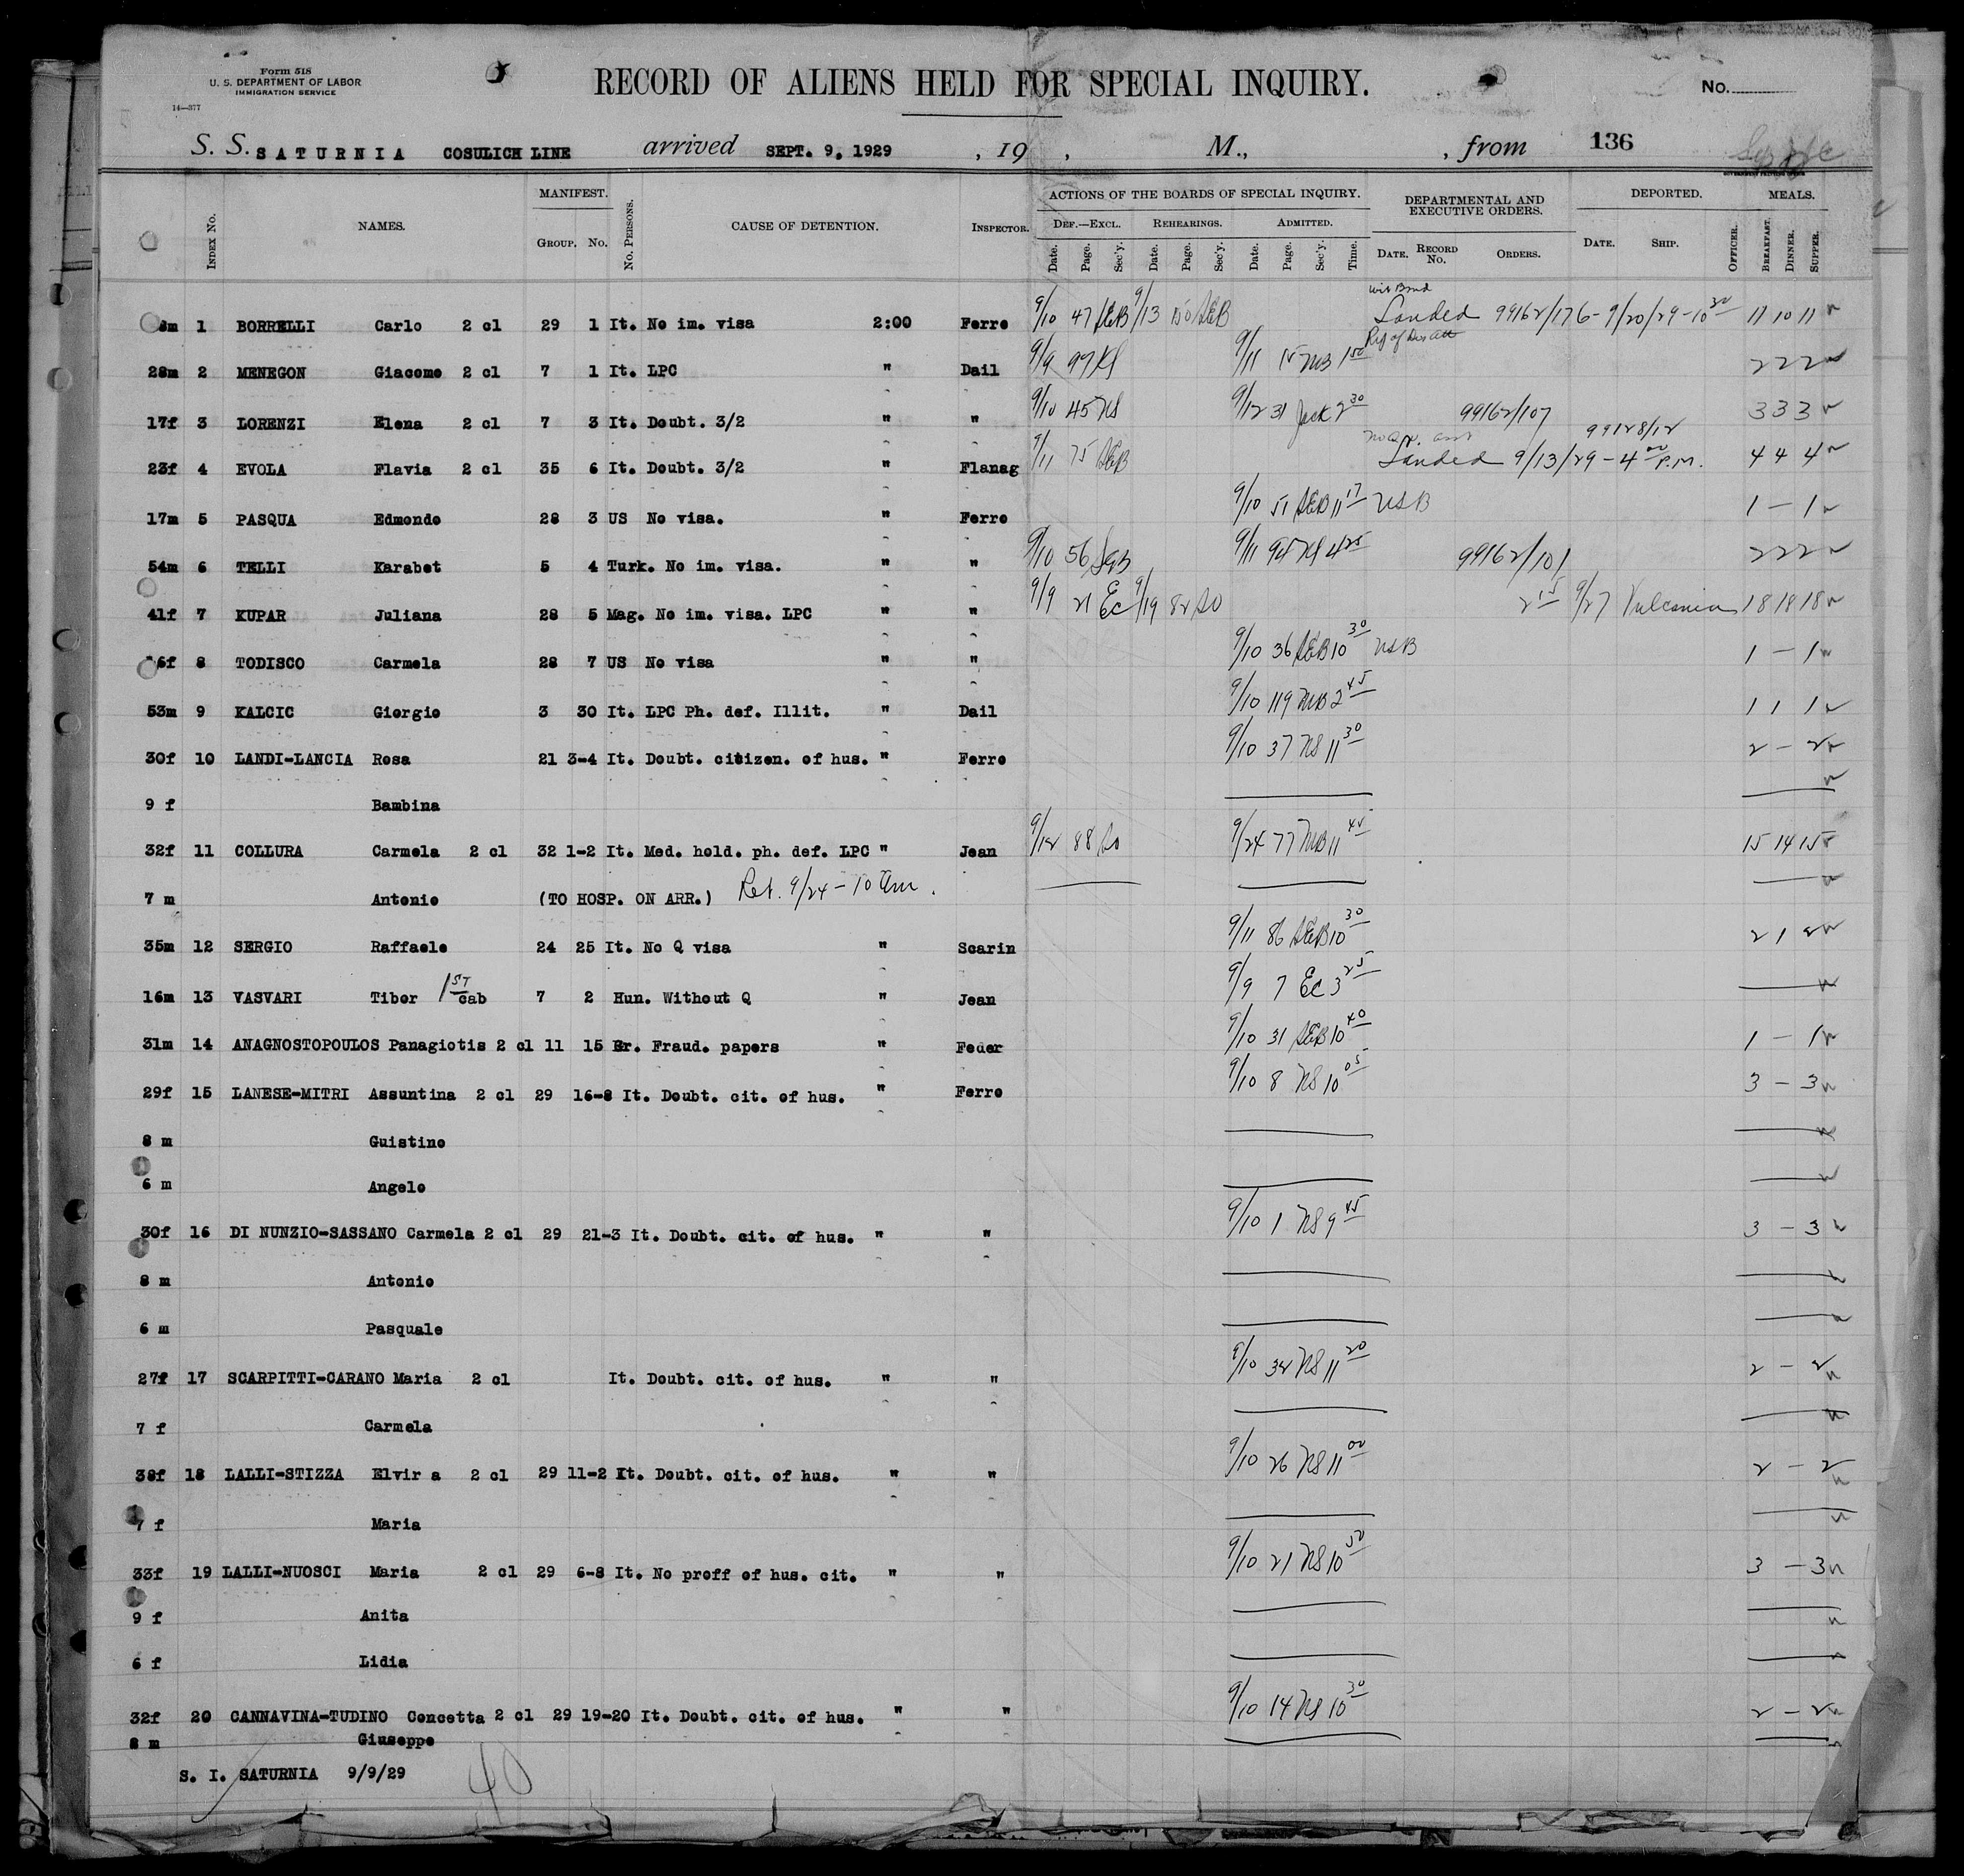 Form 518
U. S. DEPARTMENT OF LABOR
IMMIGRATION SERVICE
14—377
RECORD OF ALIENS HELD FOR SPECIAL INQUIRY.
No.
S. S. SATURNIA COSULICH LINE arrived SEPT. 9, 1929 , 19 , M., , from 136
INDEX No. NAMES. MANIFEST. GROUP. No. No. PERSONS. CAUSE OF DETENTION. INSPECTOR. ACTIONS OF THE BOARDS OF SPECIAL INQUIRY. DEPARTMENTAL AND EXECUTIVE ORDERS. DEPORTED. MEALS.
DEF.—EXCL. REHEARINGS. ADMITTED.
Date. Page. Sec'y. Date. Page. Sec'y. Date. Page. Sec'y. Time. DATE. RECORD No. ORDERS. DATE. SHIP. OFFICER. BREAKFAST. DINNER. SUPPER.
m 1 BORRELLI Carlo 2 cl 29 1 It. No im. visa 2:00 Ferro 9/10 47 AEB 9/13 150 AEB Landed 99162/176 - 9/20/29 - 10 30 11 10 11
28m 2 MENEGON Giacomo 2 cl 7 1 It. LPC " Dail 9/9 97 9/11 15 MB 1 50 2 2 2
17f 3 LORENZI Elena 2 cl 7 3 It. Doubt. 3/2 " " 9/10 45 NS 9/12 31 Jack 2 30 99162/107 3 3 3
99128/12
23f 4 EVOLA Flavia 2 cl 35 6 It. Doubt. 3/2 " Flanag 9/11 75 AEB Landed 9/13/29 - 4 00 P.M. 4 4 4
17m 5 PASQUA Edmondo 28 3 US No visa. Ferro 9/10 51 AEB 11 17 USB 1 – 1
54m 6 TELLI Karabet 5 4 Turk. No im. visa. " " 9/10 56 9/11 94 NS 4 25 99162/101 2 2 2
41f 7 KUPAR Juliana 28 5 Mag. No im. visa. LPC " " 9/9 21 EC 9/19 82 2 15 9/27 Vulcania 18 18 18
6f 8 TODISCO Carmela 28 7 US No visa " " 9/10 36 AEB 10 30 USB 1 – 1
53m 9 KALCIC Giorgio 3 30 It. LPC Ph. def. Illit. " Dail 9/10 119 MB 2 45 1 1 1
30f 10 LANDI-LANCIA Rosa 21 3-4 It. Doubt. citizen. of hus. " Ferro 9/10 37 NS 11 30 2 – 2
9 f Bambina
32f 11 COLLURA Carmela 2 cl 32 1-2 It. Med. hold. ph. def. LPC " Jean 9/12 88 9/24 77 MB 11 45 15 14 15
7 m Antonio (TO HOSP. ON ARR.) Ret. 9/24 - 10 am.
35m 12 SERGIO Raffaele 24 25 It. No Q visa " Scarin 9/11 86 AEB 10 30 2 1 2
16m 13 VASVARI Tibor 1ST cab 7 2 Hun. Without Q " Jean 9/9 7 EC 3 25
31m 14 ANAGNOSTOPOULOS Panagiotis 2 cl 11 15 Gr. Fraud. papers " Feder 9/10 31 AEB 10 40 1 – 1
29f 15 LANESE-MITRI Assuntina 2 cl 29 16-8 It. Doubt. cit. of hus. " Ferro 9/10 8 NS 10 05 3 – 3
8 m Guistino
6 m Angelo
30f 16 DI NUNZIO-SASSANO Carmela 2 cl 29 21-3 It. Doubt. cit. of hus. " " 9/10 1 NS 9 45 3 – 3
8 m Antonio
6 m Pasquale
27f 17 SCARPITTI-CARANO Maria 2 cl It. Doubt. cit. of hus. " " 9/10 32 NS 11 20 2 – 2
7 f Carmela
38f 18 LALLI-STIZZA Elvir a 2 cl 29 11-2 It. Doubt. cit. of hus. " " 9/10 26 NS 11 00 2 – 2
7 f Maria
33f 19 LALLI-NUOSCI Maria 2 cl 29 6-8 It. No proff of hus. cit. " " 9/10 21 NS 10 50 3 – 3
9 f Anita
6 f Lidia
32f 20 CANNAVINA-TUDINO Concetta 2 cl 29 19-20 It. Doubt. cit. of hus. " " 9/10 14 NS 10 30 2 – 2
8 m Giuseppe
S. I. SATURNIA 9/9/29 40